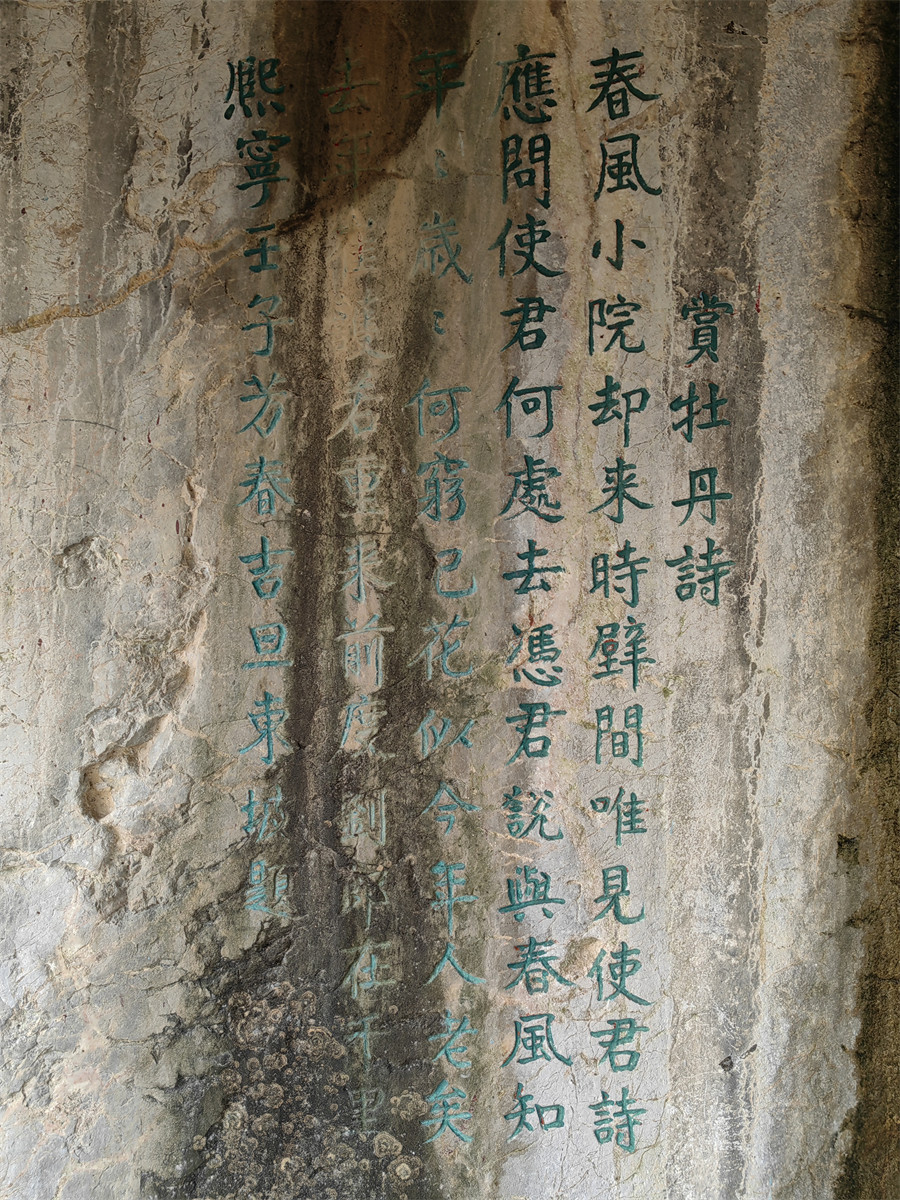 賞牡丹詩
春風小院却来時壁間唯見使君詩
應問使君何處去慿君說與春風知
年〻歳〻何窮已花似今年人老矣
去年崔護若重来前度劉郎在千里
熙寧壬子芳春吉旦東坡題